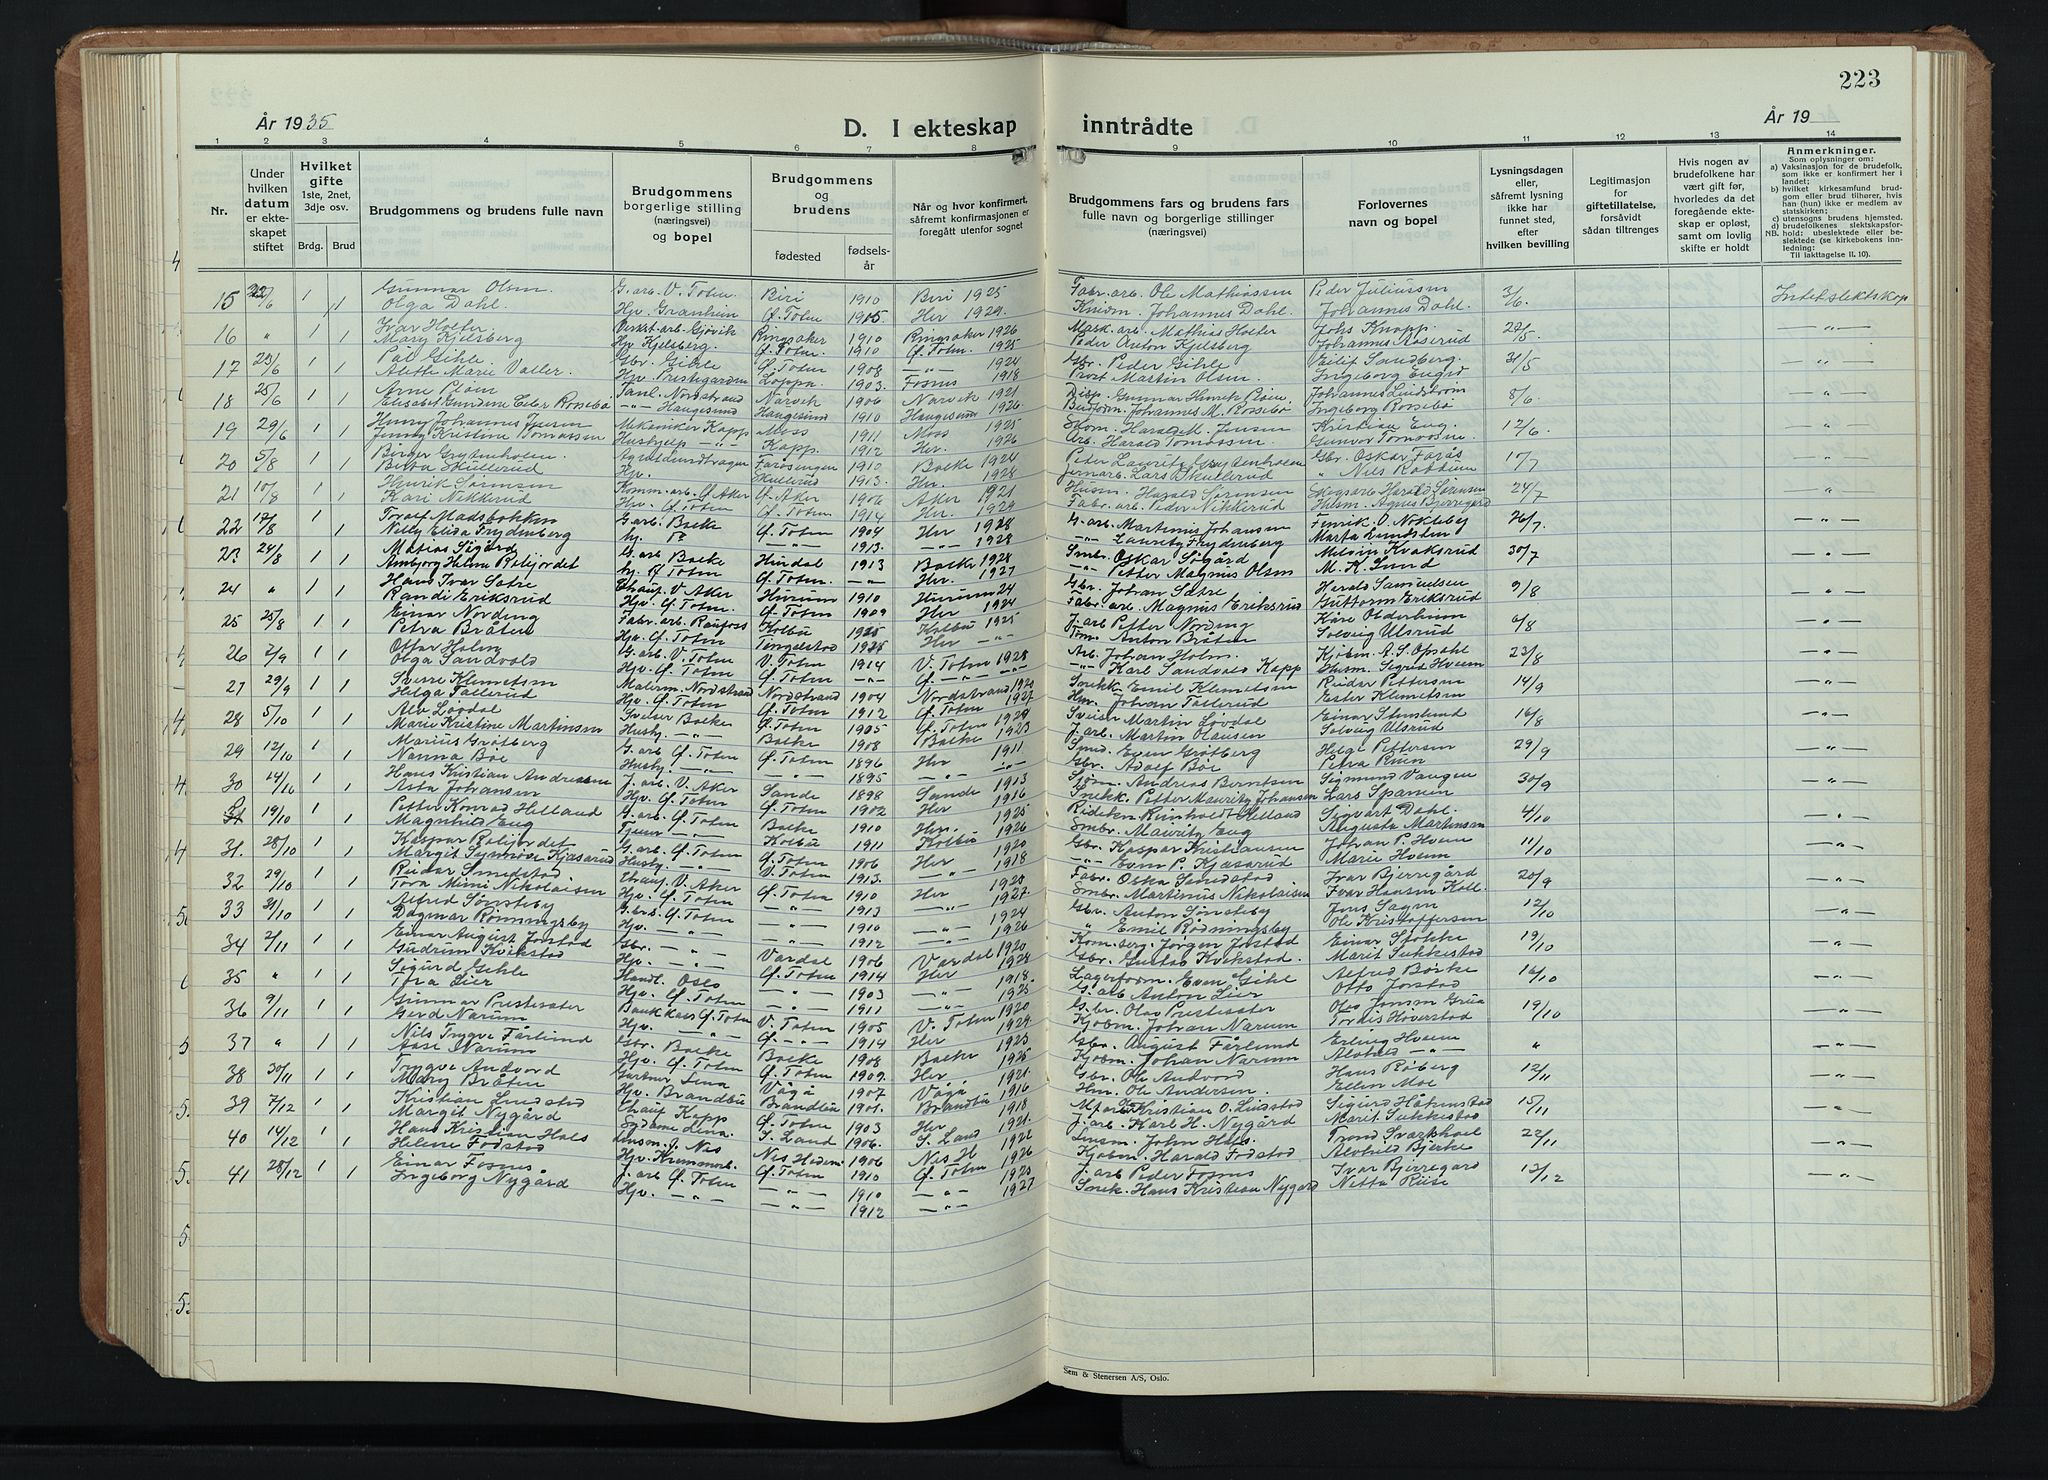 223
År 1935
D. I ekteskap inntrådte
År 19
1 2 3 4 5 6 7 8 9 10 11 12 13 14
Nr.
Under hvilken datum er ekteskapet stiftet
Hvilket gifte 1ste, 2net, 3dje osv.
Brdg. Brud
Brudgommens og brudens fulle navn
Brudgommens borgerlige stilling (næringsvei) og bopel
Brudgommens og brudens
fødested
fødselsår
Når og hvor konfirmert, såfremt konfirmasjonen er foregått utenfor sognet
Brudgommens fars og brudens fars fulle navn og borgerlige stillinger (næringsvei)
Forlovernes navn og bopel
Lysningsdagen eller, såfremt lysning ikke har funnet sted, efter hvilken bevilling
Legitimasjon for giftetillatelse, forsåvidt sådan tiltrenges
Hvis nogen av brudefolkene har vært gift før, hvorledes da det foregående ekteskap er opløst, samt om lovlig skifte er holdt
Anmerkninger.
Som oplysninger om:
a) Vaksinasjon for de brudefolk, som ikke er konfirmert her i landet;
b) hvilket kirkesamfund brudgom eller brud tilhører, hvis han (hun) ikke er medlem av statskirken;
c) utensogns brudens hjemsted.
d) brudefolkenes slektskapsforhold: ubeslektede eller beslektede (se kirkebokens innledning:
NB. Til iakttagelse II. 10).
15 22/6 1 Gunnar Olsen G. arb. V. Toten Biri 1910 Biri 1925 Fabr. arb. Ole Mathiassen Peder Juliussen 3/6. Intet slektskap
1 Olga Dahl. Hjv. Granheim Ø. Toten 1905 Her 1929. Johannes Dahl. Johannes Dahl.
16 " 1 Ivar Holter Verkst. arb. Gjøvik Ringsaker 1910 Ringsaker 1926 Mask. arb. Mathias Holter Johs Knapp. 27/5. — " —
1 Mary Kjelsberg Hjv Kjelsberg. Ø. Toten. 1910 Ø. Toten. 1925 Peder Anton Kjelsberg Johannes Røserud
17 23/6 1 Pål Gihle. Gbr. Gihle Ø. Toten 1908 — " — 1924 Gbr. Peder Gihle Eilif Sandberg. 31/5 "
1 Alethe Marie Valler. Hjv. Prestegården Loppa. 1903. Fosnes 1918 Prost Martin Olsen. Ingeborg Engid
18 25/6 1 Arne Pløen Nordstrand Narvik 1906 Narvik 1921 Disp. Gunnar Henrik Pløen. Johannes Lindstrøm 8/6. "
1 Rossebø — " — Haugesund Haugesund 1910 Haugesund 1926. Johannes M. Rossebø Ingeborg Rossebø
19 29/6 1 Henry Johannes Jensen Mekaniker Kapp Moss 1911 Moss 1925 Skom. Harald M. Jensen Kristian Eng. 12/6. "
1 Jenny Kristine Tomassen Hushjelp — " — Kapp. 1912 Her. 1926 Arb. Harald Tomassen. Gunvor Tomassen.
20 5/8 1 Birger Grytenholm. 1910 Boeke 1924 Peder Lauritz Grytenholm Gbr. Oskar Forås 17/7
1 Skullerud Hjv. Skullerud 1913. Her. 1928 Jernarb. Lars Skullerud " Nils Rabben
21 10/8 1 Henrik Sørensen Komm. arb. Ø. Aker Ø. Aker 1906 Aker 1921 Husm. Harald Sørensen Harald Sørensen 24/7 "
1 Kari Nikkerud Hjv. Ø. Toten Ø. Toten 1914 Her. 1929 Fabr. arb. Peder Nikkerud Husm. Agnes Bjerregård
22 17/8 1 Toralf Madsbakken G. arb. Boeke Ø. Toten 1904 Her 1928 G. arb. Martinius Johansen Fenrik O. Nøkleby 26/7. — " —
1 Nelly Elida Frydenberg hj. — " — 1913. — " — 1928 — " — Lauritz Frydenberg Marta Lundsten
23 24/8 1 Matias Søgård G. arb Boeke Hurdal 1913 Boeke 1928 Smbr. Oskar Søgård Melvin Kvaksrud 30/7 — " —
1 Ambjørg Helene Røisjordet hj. Ø Toten Ø. Toten. — " — Her. 1927 — " — Petter Magnus Olsen M. K. Lund
24 " 1 Hans Ivar Sætre Chauf. V. Aker Hurum 1910 Hurum 24 Gbr. Johan Sætre. Harald Samuelsen 9/8 — " —
1 Randi Eriksrud Hjv. Ø. Toten. Ø. Toten 1909 Her 1924 Fabr. arb. Magnus Eriksrud Guttorm Eriksrud
25 25/8 1 Einar Nordeng Fabr. arb. Raufoss Kolbu 1925 Kolbu 1925 J. arb Petter Nordeng Kåre Olderheim 6/8 — " —
1 Petra Bråten Hjv. Ø. Toten Tingelstad Her — " — Tom. Anton Bråten Solveig Ulsrud
26 2/9 1 Ottar Holm G. arb. V. Toten V. Toten 1914 V. Toten 1928 Arb. Johan Holm. Kjøbm. A. S. Opsahl 23/8 — " —
1 Olga Sandvold Hjv. Ø. Toten Ø. Toten — " — Ø. — " — — " — Karl Sandvold Kapp Husm. Sigrid Hveem
27 29/9 1 Sverre Klemetsen Malerm. Nordstrand Nordstrand 1904 Nordstrand Snekk. Emil Klemetsen Reidar Pettersen 14/9 — " —
1 Helga Tollerud Hjv. Ø. Toten Ø. Toten 1912 Ø. Toten 1927 Hm. Johan Tollerud Ester Klemetsen
28 5/10 1 Alv Løvdal Sveiser Boeke Ø. Toten 1905 Ø. Toten 1920 Sveiser Martin Løvdal Einar Stenslund 16/8 — " —
1 Marie Kristine Martinsen Hushj. — " — Boeke 1908 Boeke 1923 J. arb. Martin Olausen Solveig Ulsrud
29 12/10 1 Marius Grøtberg G. arb Ø. Toten Ø. Toten 1896 Her 1911 Smed. Even Grøtberg Helge Pettersen 29/9 — " —
1 Nanna Bøe Hushj. — " — — " — 1895 — " — Gbr. Adolf Bøe Petra Ruen
30 14/10 1 Hans Kristian Andresen J. arb. V. Aker Sande 1898 Sande 1913 Sjøm. Andreas Berntsen Sigmund Vangen 30/9 — " —
1 Asta Johansen Hjv. Ø. Toten Ø. Toten 1902 Her 1916 Snekk. Petter Mauritz Johansen Lars Spansen
19/10 1 Petter Konrad Helland G. arb. Ø. Toten Boeke 1910 Her. 1925 Reinholdt Helland Sigvart Dahl. 4/10 — " —
1 Magnhild Eng Tjener — " — Kolbu 1911 Kolbu 1926 Smbr. Mauritz Eng Augusta Martinsen
31. 28/10 1 Kaspar Røisjordet G. arb. Ø. Toten Ø. Toten 1906 Her 1920 Gbr. Kaspar Kristiansen Johan P. Hveem 11/10 — " —
1 Margit Synnøve Kjøserud Hushj. — " — V. Toten 1913. — " — 1918 — " — Even P. Kjøserud Marie Hveem
32 29/10 1 Reidar Smedstad Chauf. V. Aker Ø. Toten 1910 Her 1920 Fabr. Oska Smedstad Ivar Bjerregård 20/9 — " —
1 Tora Mimi Nikolaisen Hjv. Ø. Toten — " — 1913 — " — 1927 Smbr. Martinius Nikolaisen Ivar Hansen Koll.
33 31/10 1 Alfred Sønsteby Gbrs. Ø. Toten — " — 1910 — " — 1924 Gbr. Anton Sønsteby Jens Sagen 12/10 — " —
1 Dagmar Rønningsby Hjv. — " — — " — 1912 — " — 1926 " Emil Rødningsby Ole Kristoffersen
34 2/11 1 Einar August Jørstad Gbr. — " — Vardal 1906 Vardal 1920 Kom. serg. Jørgen Jørstad Einar Sjølie 19/10 — " —
1 Gudrun Kvikstad Hjv. — " — Ø. Toten 1914 Her 1928 Gbr. Gustav Kvikstad. Marit Sukkestad
35 " 1 Sigurd Gihle Handl. Oslo — " — 1903 — " — 1918 Lagerform. Even Gihle Alfred Børke 16/10 — " —
1 Tora Lier Hjv. Ø. Toten — " — 1911 — " — 1925 G. arb Anton Lier Otto Jørstad
36 9/11 1 Gunnar Prestesæter Bankkass. Ø. Toten V. Toten 1905 V. Toten 1920 Gbr. Olav Prestesæter Olav Jensen Grua 19/10 — " —
1 Gerd Narum Hjv. — " — Ø. — " — 1914 Her 1929 Kjøbm. Johan Narum Tordis Høverstad
37 " 1 Nils Trygve Fårlund Gbr. Boeke Boeke 1908 Boeke 1923 Gbr. August Fårlund Erling Hveem " — " —
1 Aase Narum Hjv. Ø. Toten Ø. Toten 1909. Her 1925 Kjøbm. Johan Narum Alvhild — " —
38 30/11 1 Trygve Andvord Gartner Lena Vågå 1907 Vågå 1921. Gbr. Ole Andvord Hans Røberg 12/11 — " —
1 Mary Bråten Hjv. Brandbu Brandbu 1901. Brandbu 1916 Hm. Ole Andersen Ellen Moe
39 7/12 1 Kristian Lindstad Chauf Kapp Ø. Toten 1903 Her 1918 Kristian O. Lindstad Sigurd Håkenstad 15/11 — " —
1 Margit Nygård Sydame Lena. S. Land 1906. S. Land 1921. J. arb. Karl H. Nygård Marit Sukkestad
40 14/12 1 Hans Kristian Hols Lensm. f. Nes Nes Hedem. 1906 Nes H 1922 Lensm. John Hols. Trond Svartkoel 22/11 — " —
1 Helene Fodstad Hjv. Kremmerb. Ø. Toten 1910 Ø. Toten 1926 Kjøbm. Harald Fodstad Alvhild Bjerke
41 28/12 1 Einar Fosnes J. arb Ø. Toten — " — 1910 — " — 1925 J. arb Peder Fosnes Ivar Bjerregård 13/12 — " —
1 Ingeborg Nygård Hjv. — " — — " — 1912 — " — 1927 Snek. Hans Kristian Nygård Netta Riise
Sem & Stenersen A/S, Oslo.